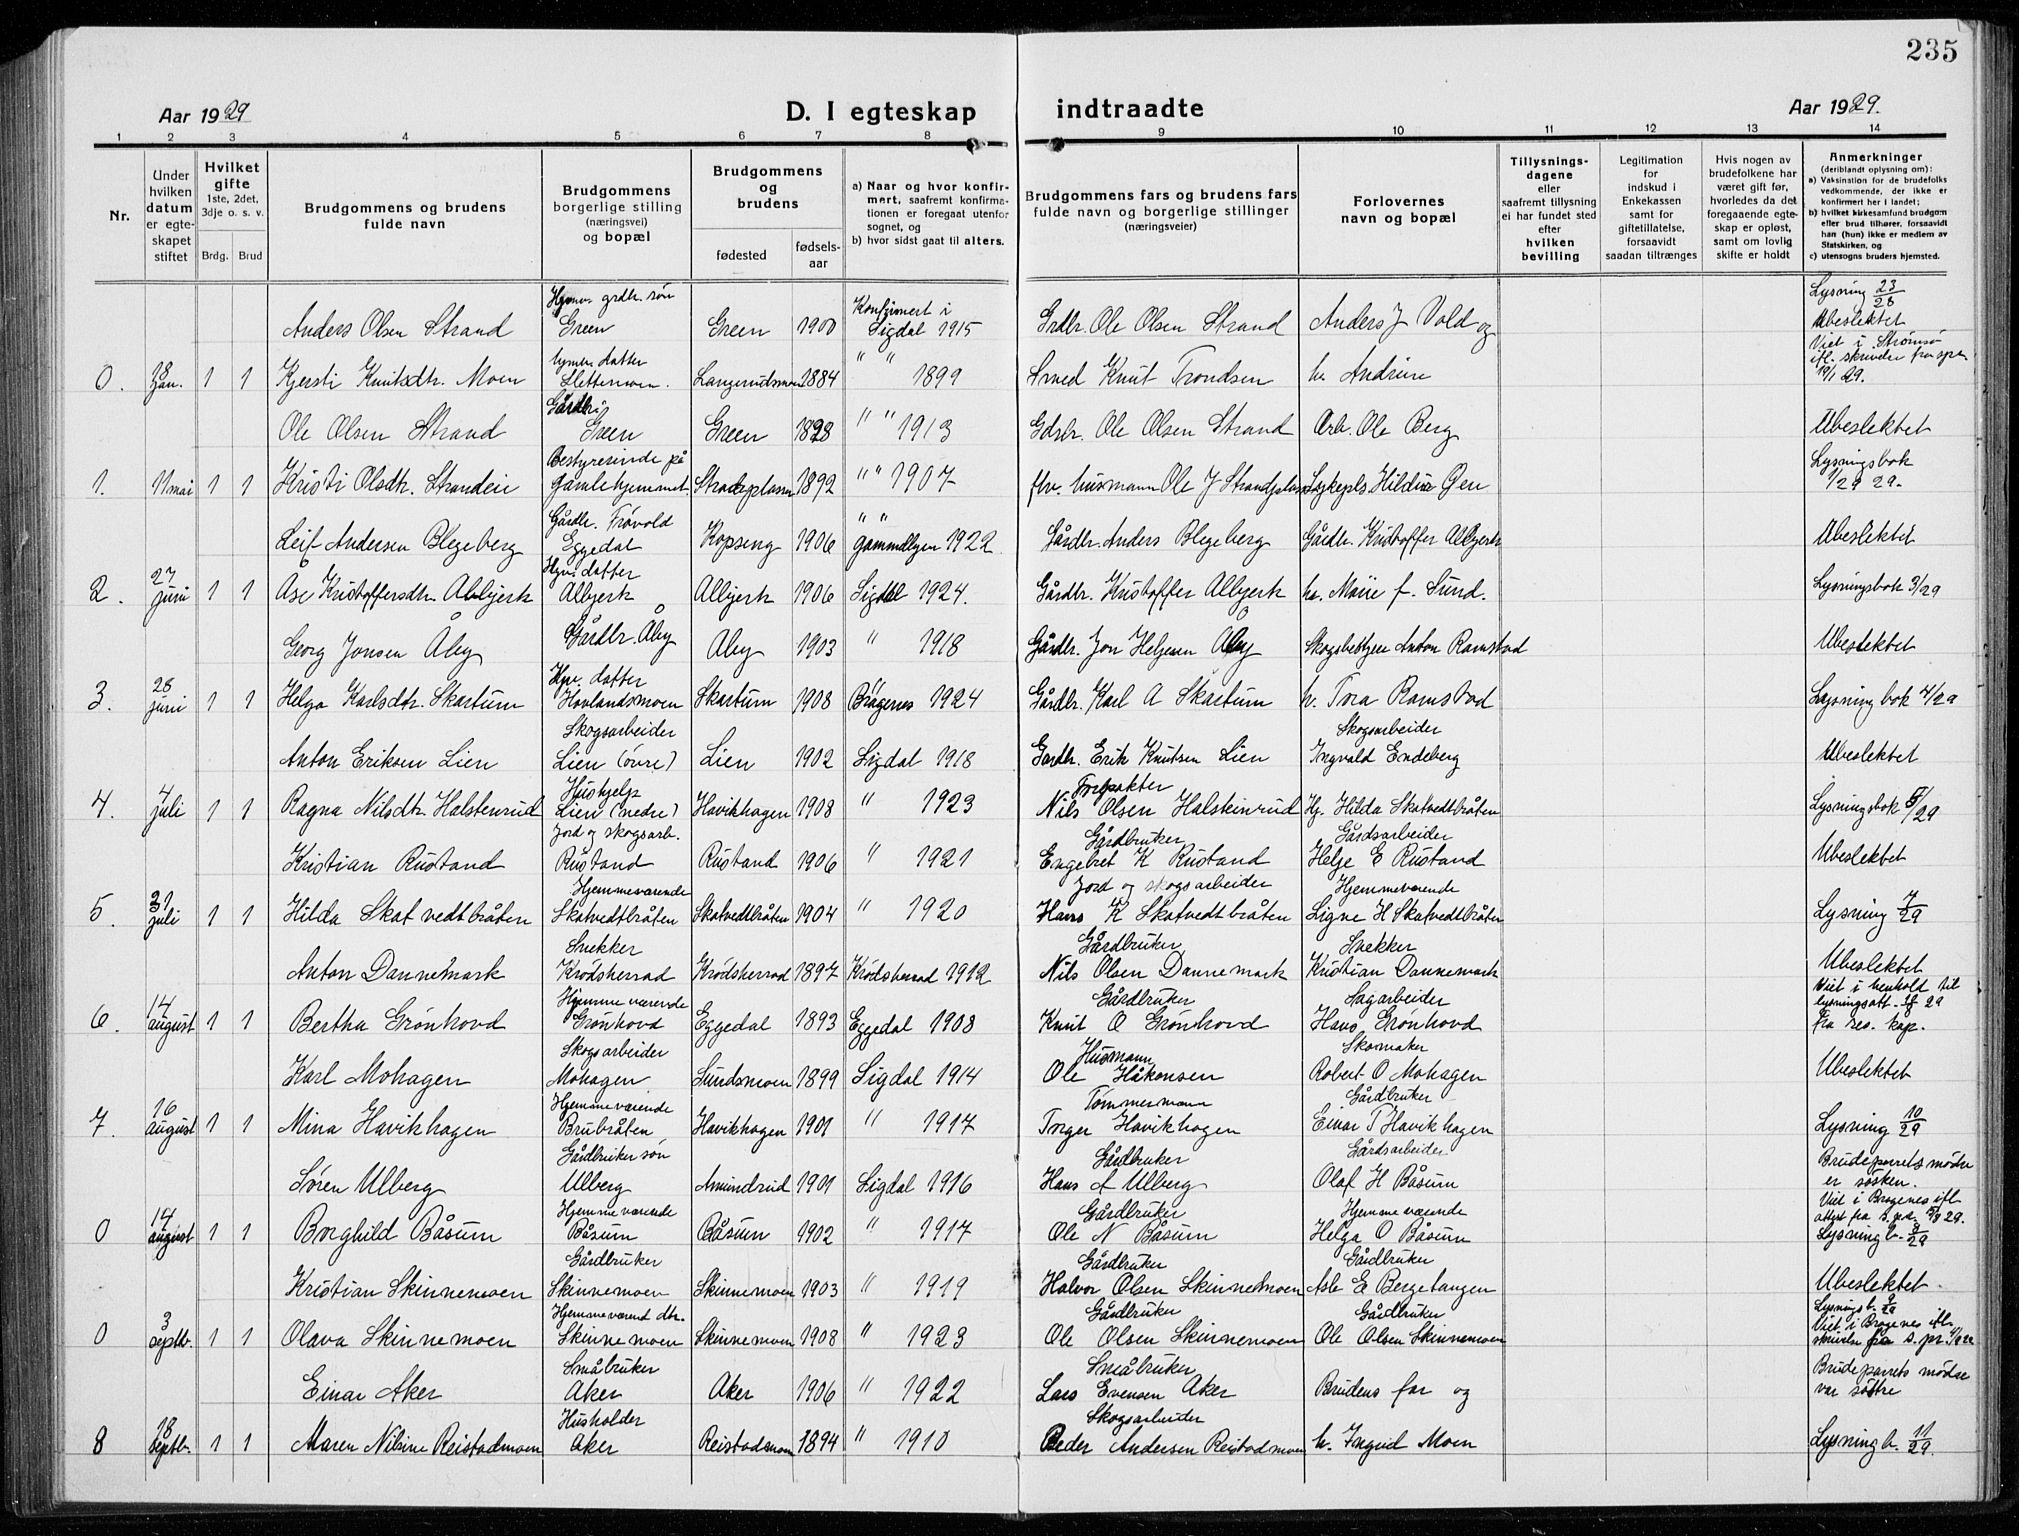 235
Aar 1929
D. I egteskap indtraadte
Aar 1929.
1 2 3 4 5 6 7 8 9 10 11 12 13 14
Nr.
Under hvilken datum er egteskapet stiftet
Hvilket gifte 1ste, 2det, 3dje o. s. v.
Brdg. Brud
Brudgommens og brudens fulde navn
Brudgommens borgerlige stilling (næringsvei) og bopæl
Brudgommens og brudens
fødested
fødselsaar
a) Naar og hvor konfirmert, saafremt konfirmationen er foregaat utenfor sognet, og
b) hvor sidst gaat til alters.
Brudgommens fars og brudens fars fulde navn og borgerlige stillinger (næringsveier)
Forlovernes navn og bopæl
Tillysningsdagene eller saafremt tillysning ei har fundet sted efter hvilken bevilling
Legitimation for indskud i Enkekassen samt for giftetillatelse, forsaavidt saadan tiltrænges
Hvis nogen av brudefolkene har været gift før, hvorledes da det foregaaende egteskap er opløst, samt om lovlig skifte er holdt
Anmerkninger (deriblandt oplysning om):
a) Vaksination for de brudefolks vedkommende, der ikke er konfirmert her i landet;
b) hvilket kirkesamfund brudgom eller brud tilhører, forsaavidt han (hun) ikke er medlem av Statskirken, og
c) utensogns bruders hjemsted.
Anders Olsen Strand Hjmv. grdbr. søn Green Green 1900 Konfirmert i Sigdal 1915 Grdbr. Ole Olsen Strand Anders J Vold og Lysning 23/28 Ubeslektet
0. 18 jan. 1 1 Kjersti Knutsdtr. Moen hjmv. datter Slettemoen. Langerudsmoen 1884 " " 1899 Smed Knut Trondsen h. Andrine Viet i Strømsø ifl. skrivelse fra spr. 19/1 29.
Ole Olsen Strand Gårdbr. Green Green 1898 " " 1913 Gdsbr. Ole Olsen Strand Arb. Ole Berg Ubeslektet
1. 11 mai 1 1 Kristi Olsdtr. Strandeie Bestyrerinde på Gamlehjemmet 1892 " " 1907 fhv. husmann Ole J Hildur Lysningsbok 1/29 29.
Leif Andersen Blegeberg Gårdbr. Frøvold Eggedal Kopseng 1906 " " 1922 Gårdbr. Anders Blegeberg Gårdbr. Kristoffer Albjerk Ubeslektet
2. 27 juni 1 1 Åse Kristoffersdtr. Albjerk Hjv. datter Albjerk Albjerk 1906 Sigdal 1924. Gårdbr. Kristoffer Albjerk h. Marie f. Sund. Lysningsbok 3/29
Georg Jonsen Åby Gårdbr. Åby Åby 1903 " 1918 Gårdbr. Jon Helgesen Åby Skogbestyrer Anton Ramstad Ubeslektet
3. 28 juni 1 1 Helga Karlsdtr. Skartum Hjv. datter Hovlandsmoen Skartum 1908 Bragenes 1924 Gårdbr. Karl A Skartum h. Tora Ramstad Lysning bok 4/29
Anton Eriksen Lien Skogsarbeider Lien (øvre) Lien 1902 Sigdal 1918 Gardbr. Erik Knutsen Lien Skogsarbeider Ingvald Endeberg Ubeslektet
4. 4 juli 1 1 Ragna Nilsdtr. Halstenrud Hushjelp Lien (nedre) Havikhagen 1908 " 1923 Forpakter Nils Olsen Halstenrud Hj. Hilda Skatvedtbråten Lysningsbok 5/29
Kristian Rustand Jord og skogsarb. Rustand Rustand 1906 " 1921 Gårdbruker Engebret K Rustand Gårdsarbeider Helge E Rustand Ubeslektet
5. 31 juli 1 1 Hilda Skatvedtbråten Hjemmeværende Skatvedtbråten Skatvedtbråten 1904 " 1920 Jord og skogsarbeider Hans K Skatvedtbråten Hjemmeværende Signe H Skatvedtbråten Lysning 7/29
Anton Dannemark Snekker Krødsherrad Krødsherrad 1897 Krødsherrad 1912 Gårdbruker Nils Olsen Dannemark Snekker Kristian Dannemark Ubeslektet
6. 14 august 1 1 Bertha Grønhovd Hjemmeværende Grønhovd Eggedal 1893 Eggedal 1908 Gårdbruker Knut O Grønhovd Sagarbeider Hans Grønhovd Viet i henhold til lysningsatt. 29 fra res. kap.
Karl Mohagen Skogsarbeider Mohagen Sundsmoen 1899 Sigdal 1914 Husmann Ole Håkonsen Skomaker Robert O Mohagen Ubeslektet
7. 16 august 1 1 Mina Havikhagen Hjemmeværende Brubråten Havikhagen 1901 " 1917 Tømmermann Torger Havikhagen Gårdbruker Einar T Havikhagen Lysning 10/29
Søren Ulberg Gårdbruker søn Ulberg Amundrud 1901 Sigdal 1916 Gårdbruker Hans A Ulberg Gårdsarbeider Olaf H Båsum Brudeparrets mødre er søsken.
0 14 august 1 1 Borghild Båsum Hjemmeværende Båsum Båsum 1902 " 1917 Gårdbruker Ole N Båsum Hjemmeværende Helga O Båsum Viet i Bragenes ifl. attest fra s.pr. 5/8 29. Lysning b. 8/29
Kristian Skinnemoen Gårdbruker Skinnemoen Skinnemoen 1903 " 1919 Gårdbruker Halvor Olsen Skinnemoen Gårdbruker Asle E Bergehangen Ubeslektet.
0 3 septbr. 1 1 Olava Skinnemoen Hjemmeværend dtr. Skinnemoen Skinnemoen 1908 " 1923 Gårdbruker Ole Olsen Skinnemoen Gårdbruker Ole Olsen Skinnemoen Lysning b. 9/29 Viet i Bragenes ifl. skrivelse fra s. pr.
Einar Aker Småbruker Aker Aker 1906 " 1922 Småbruker Lars Evensen Aker Brudens far og Brudeparrets mødre var søstre
8 18 septbr. 1 1 Maren Nilsine Reistadmoen Husholder Aker Reistadmoen 1894 " 1910 Skogsarbeider Peder Andersen Reistadmoen h. Ingrid Moen Lysning b. 11/29.